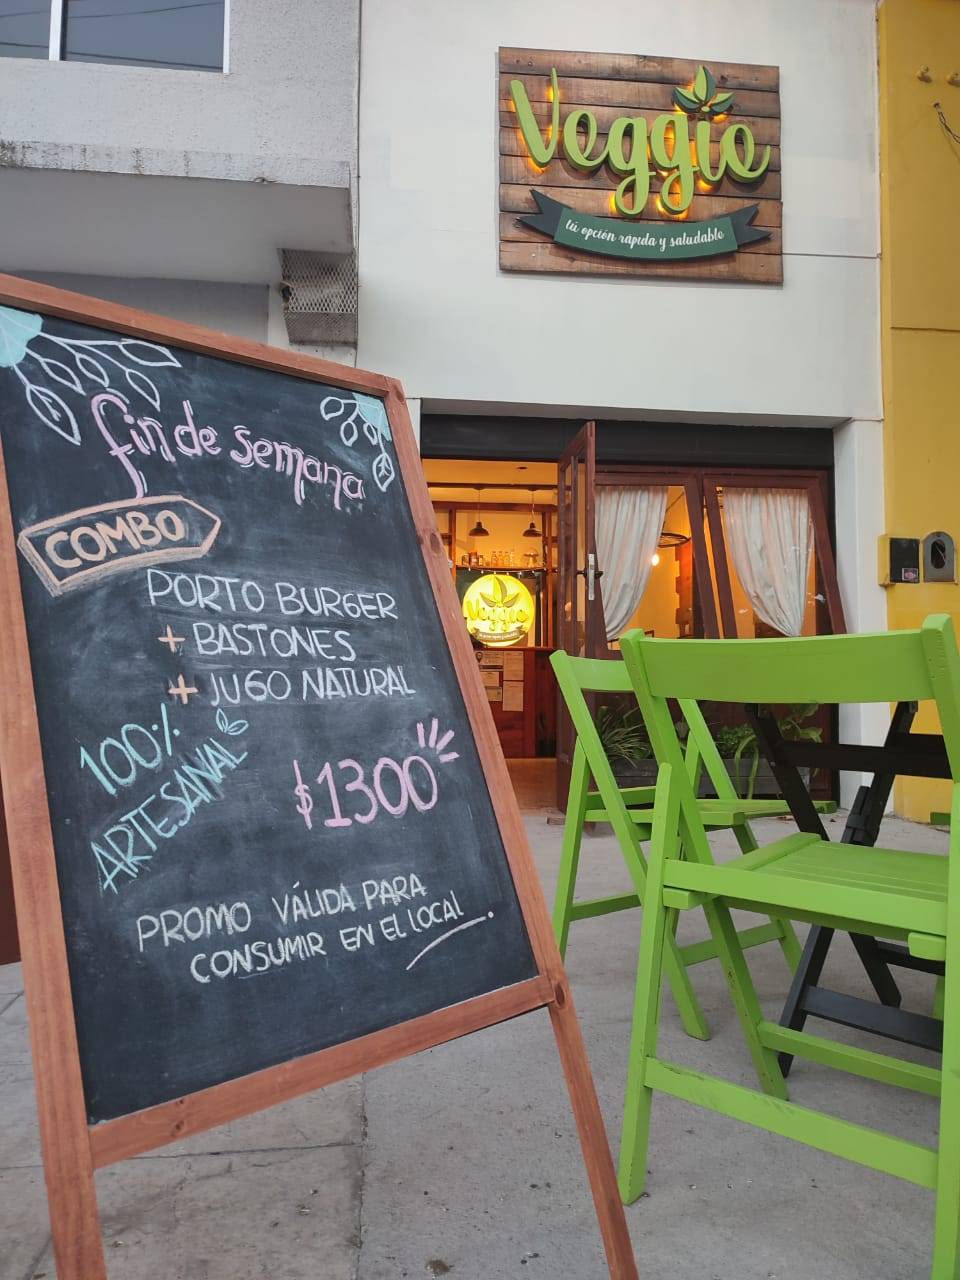 Veggie
tú opción rápida y saludable
fin de semana
COMBO
PORTO BURGER
+ BASTONES
+ JUGO NATURAL
100%
ARTESANAL
$1300
PROMO VÁLIDA PARA
CONSUMIR EN EL LOCAL.
Veggie